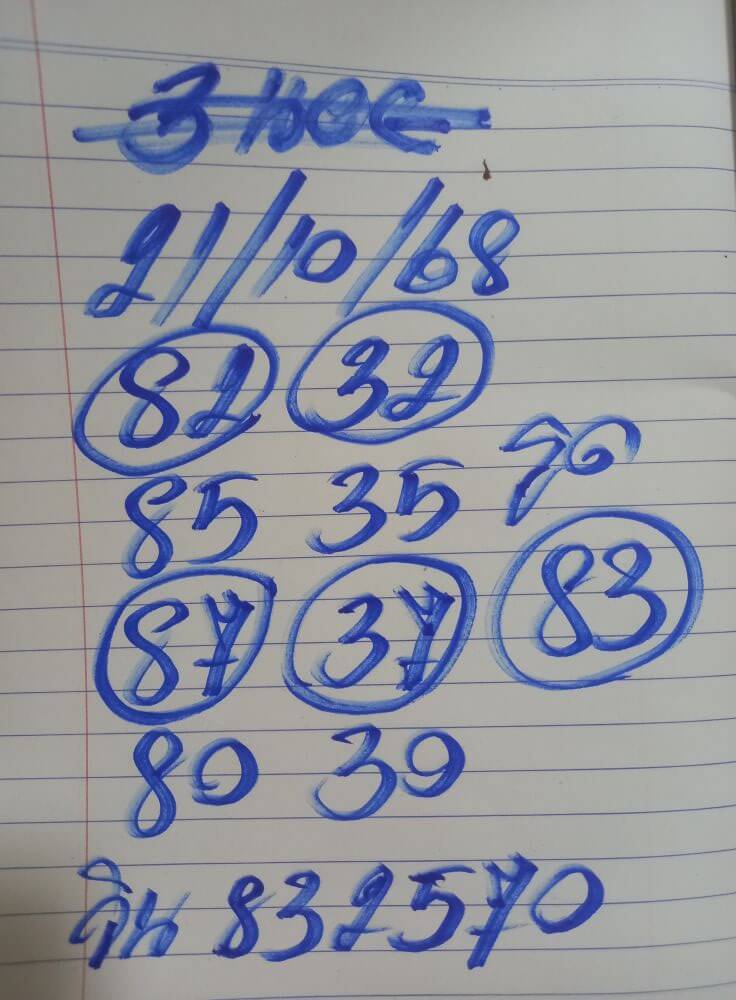 21/10/68
82 32
85 35 รูด
87 37 83
80 30
วิน 832570